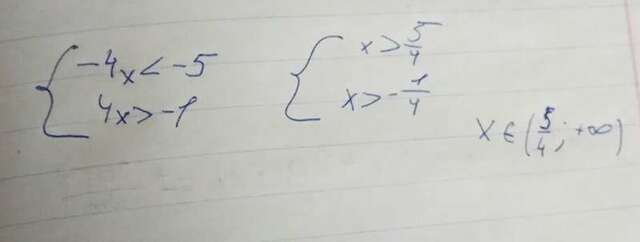 -4x < -5
4x > -1
x > 5/4
x > -1/4
x ∈ (5/4; +∞)